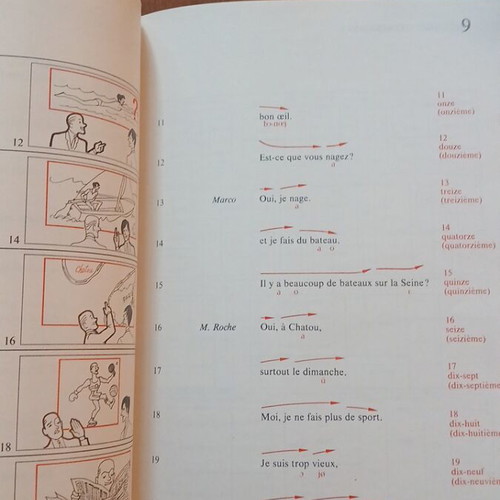 9
12
14
16
18
Chatou
11
bon œil.
12
Est-ce que vous nagez?
13
Marco
Oui, je nage.
14
et je fais du bateau.
15
Il y a beaucoup de bateaux sur la Seine?
16
M. Roche
Oui, à Chatou,
17
surtout le dimanche.
18
Moi, je ne fais plus de sport.
19
Je suis trop vieux,
11
onze
(onzième)
12
douze
(douzième)
13
treize
(treizième)
14
quatorze
(quatorzième)
15
quinze
(quinzième)
16
seize
(seizième)
17
dix-sept
(dix-septième
18
dix-huit
(dix-huitième
19
dix-neuf
(dix-neuvièm